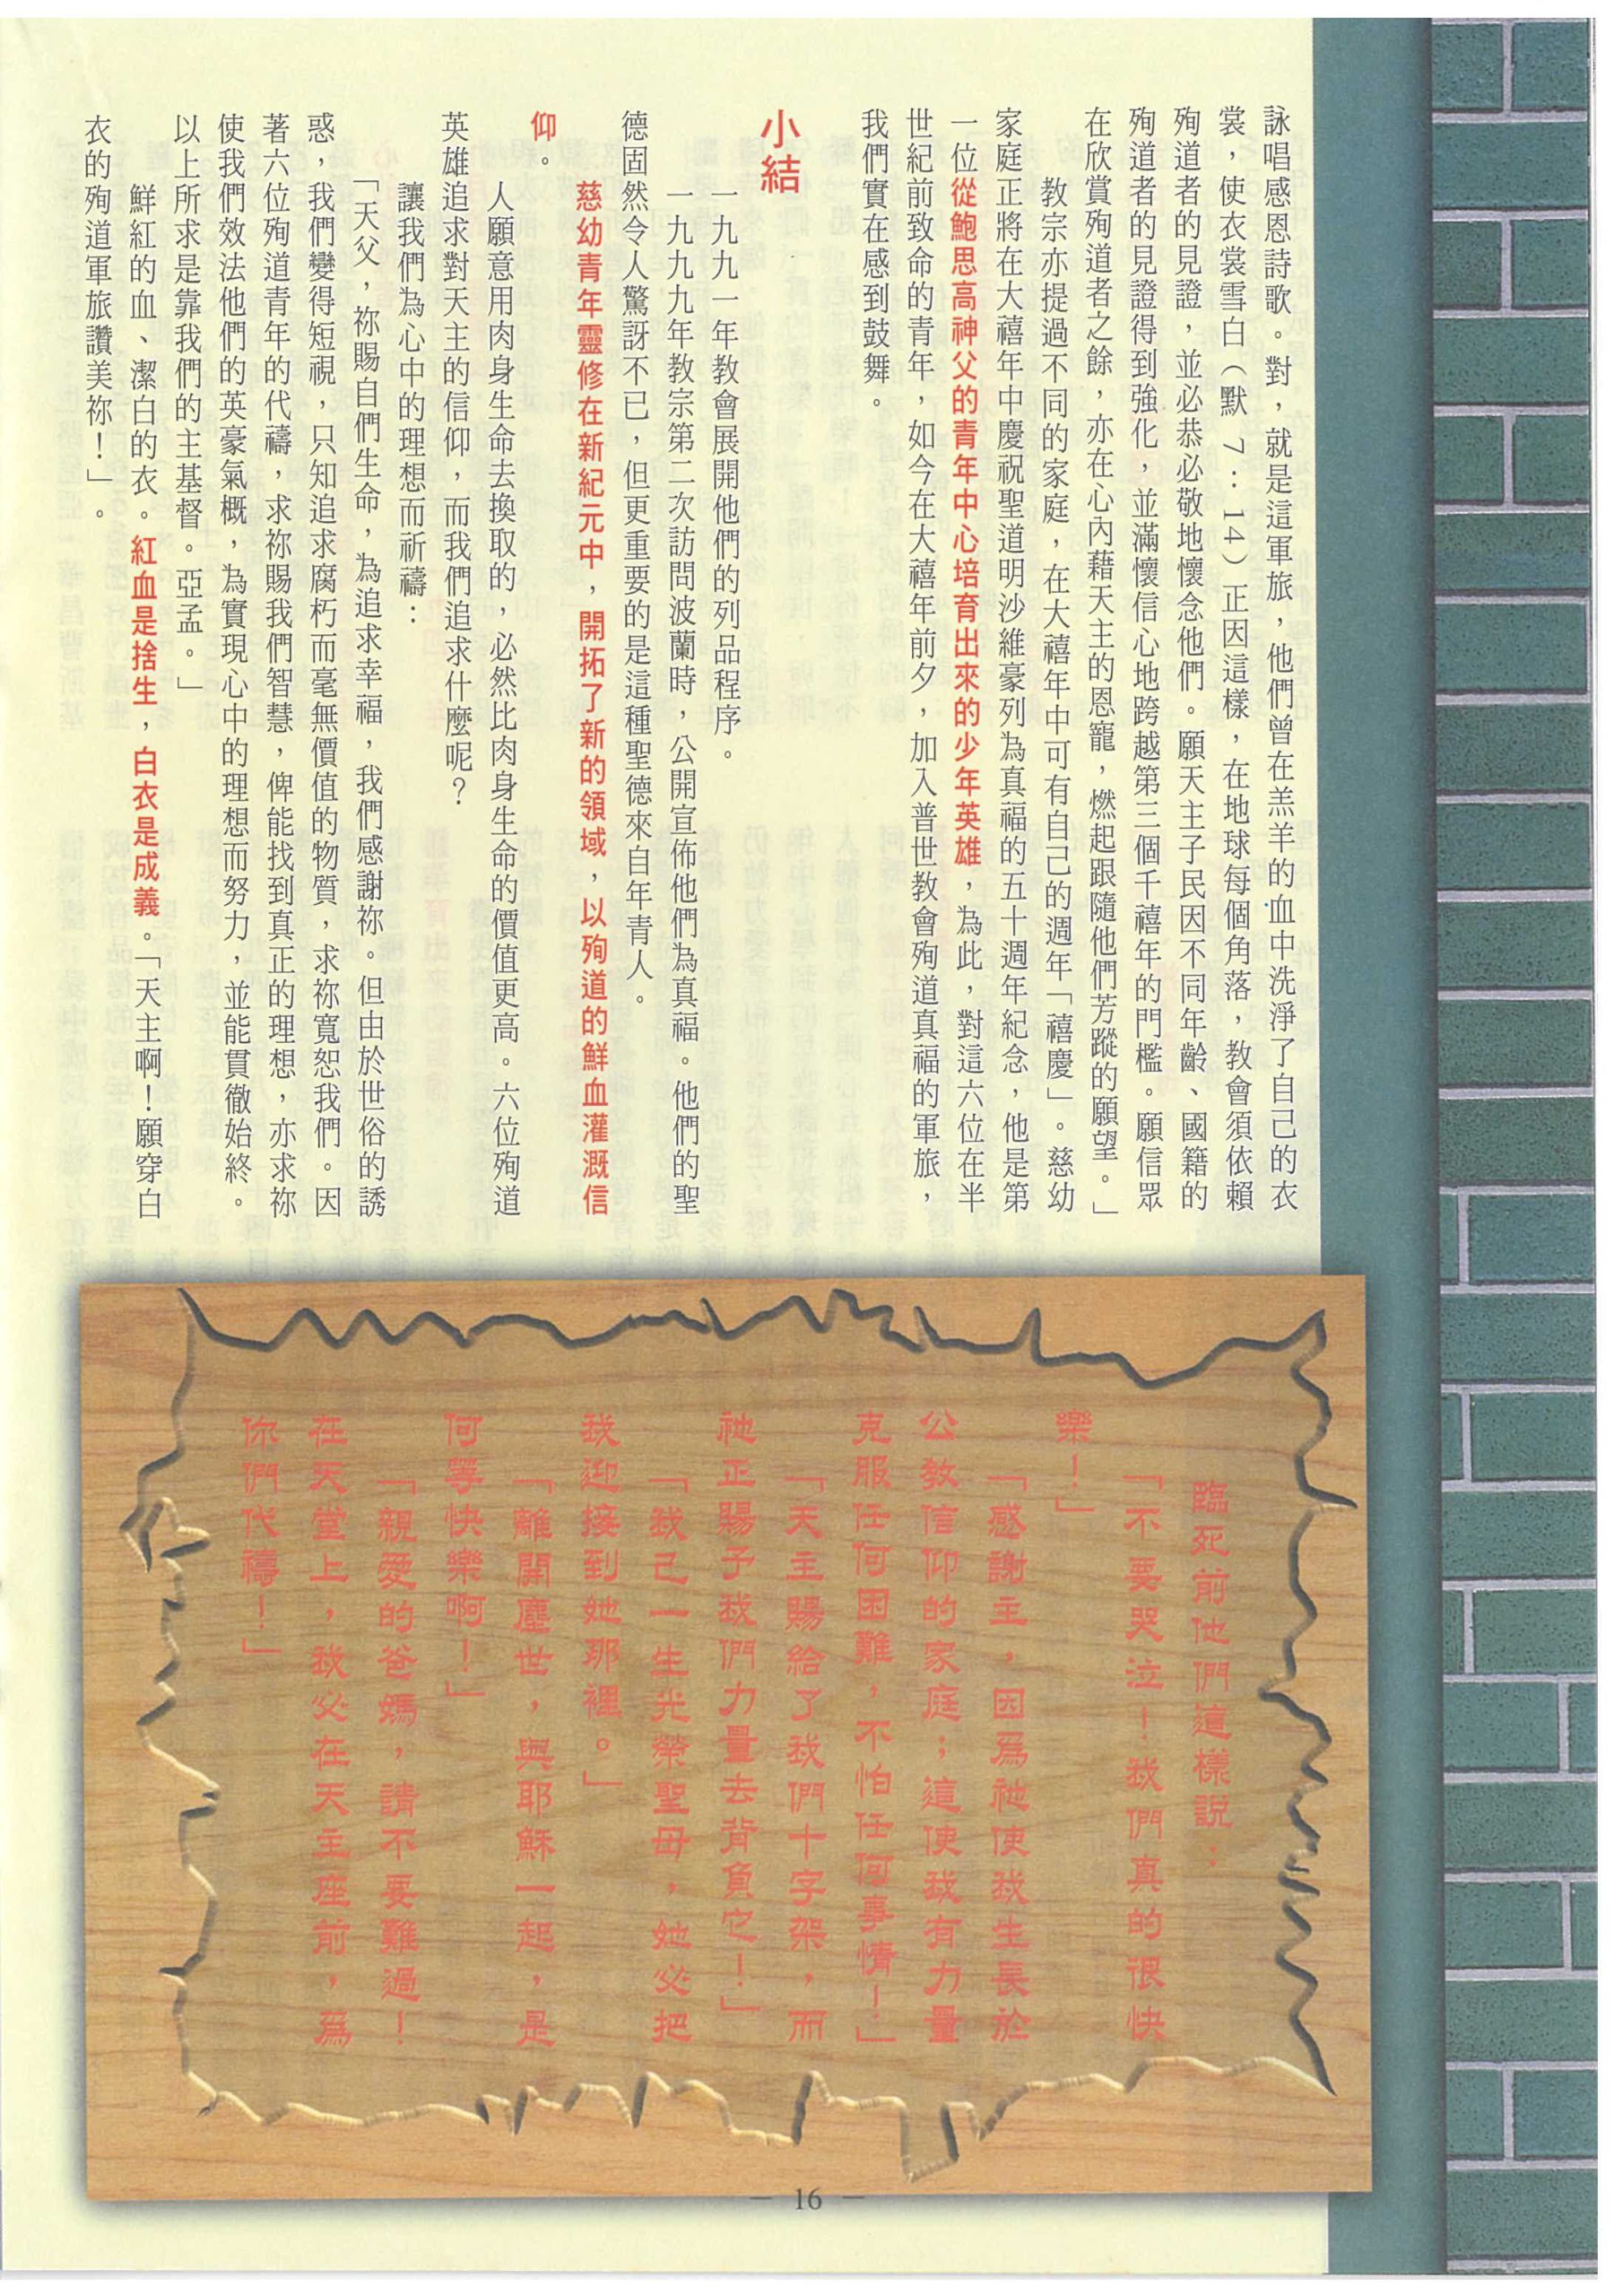 詠唱感恩詩歌。對，就是這軍旅，他們曾在羔羊的血中洗淨了自己的衣
裳，使衣裳雪白（默 7：14）正因這樣，在地球每個角落，教會須依賴
殉道者的見證，並必恭必敬地懷念他們。願天主子民因不同年齡、國籍的
殉道者的見證得到強化，並滿懷信心地跨越第三個千禧年的門檻。願信眾
在欣賞殉道者之餘，亦在心內藉天主的恩寵，燃起跟隨他們芳蹤的願望。」
教宗亦提過不同的家庭，在大禧年中可有自己的週年「禧慶」。慈幼
家庭正將在大禧年中慶祝聖道明沙維豪列為真福的五十週年紀念，他是第
一位從鮑思高神父的青年中心培育出來的少年英雄，為此，對這六位在半
世紀前致命的青年，如今在大禧年前夕，加入普世教會殉道真福的軍旅，
我們實在感到鼓舞。
小結
一九九一年教會展開他們的列品程序。
一九九九年教宗第二次訪問波蘭時，公開宣佈他們為真福。他們的聖
德固然令人驚訝不已，但更重要的是這種聖德來自年青人。
慈幼青年靈修在新紀元中，開拓了新的領域，以殉道的鮮血灌溉信
仰。
人願意用肉身生命去換取的，必然比肉身生命的價值更高。六位殉道
英雄追求對天主的信仰，而我們追求什麼呢？
讓我們為心中的理想而祈禱：
「天父，祢賜自們生命，為追求幸福，我們感謝祢。但由於世俗的誘
惑，我們變得短視，只知追求腐朽而毫無價值的物質，求祢寬恕我們。因
著六位殉道青年的代禱，求祢賜我們智慧，俾能找到真正的理想，亦求祢
使我們效法他們的英豪氣概，為實現心中的理想而努力，並能貫徹始終。
以上所求是靠我們的主基督。亞孟。」
鮮紅的血、潔白的衣。紅血是捨生，白衣是成義。「天主啊！願穿白
衣的殉道軍旅讚美祢！」。
臨死前他們這樣說：
「不要哭泣！我們真的很快
樂！」
「感謝主，因為祂使我生長於
公教信仰的家庭；這使我有力量
克服任何困難，不怕任何事情！」
「天主賜給了我們十字架，而
祂正賜予我們力量去背負它！」
「我已一生光榮聖母，她必把
我迎接到她那裡。」
「離開塵世，與耶穌一起，是
何等快樂啊！」
「親愛的爸媽，請不要難過！
在天堂上，我必在天主座前，為
你們代禱！」
— 16 —